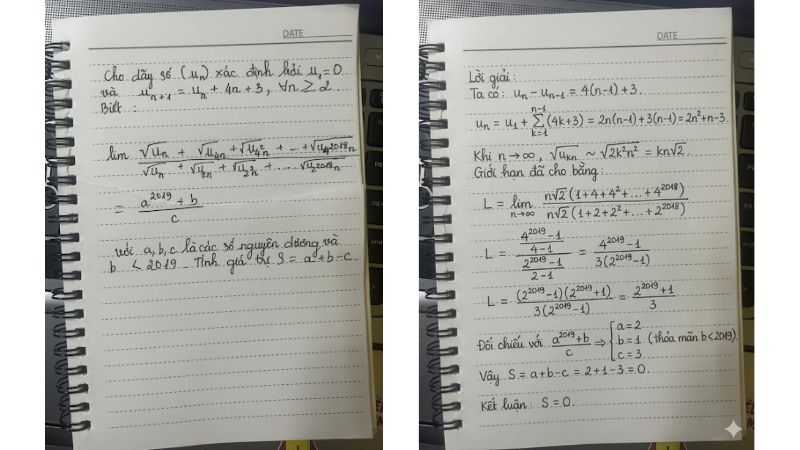 DATE
Cho dãy số (u_n) xác định bởi u_1 = 0
và u_{n+1} = u_n + 4n + 3, ∀n ≥ 2
Biết :
lim \frac{\sqrt{u_n} + \sqrt{u_{4n}} + \sqrt{u_{4^2n}} + ... + \sqrt{u_{4^{2018}n}}}{\sqrt{u_n} + \sqrt{u_{2n}} + \sqrt{u_{2^2n}} + ..... \sqrt{u_{2^{2018}n}}}
= \frac{a^{2019} + b}{c}
với a, b, c là các số nguyên dương và
b < 2019 Tính giá trị S = a+b-c
DATE
Lời giải:
Ta có: u_n - u_{n-1} = 4(n-1) + 3.
u_n = u_1 + \sum_{k=1}^{n-1} (4k+3) = 2n(n-1) + 3(n-1) = 2n^2 + n - 3.
Khi n → ∞, \sqrt{u_{kn}} ~ \sqrt{2k^2n^2} = kn\sqrt{2}.
Giới hạn đã cho bằng:
L = \lim_{n→∞} \frac{n\sqrt{2}(1+4+4^2+...+4^{2018})}{n\sqrt{2}(1+2+2^2+...+2^{2018})}
L = \frac{\frac{4^{2019}-1}{4-1}}{\frac{2^{2019}-1}{2-1}} = \frac{4^{2019}-1}{3(2^{2019}-1)}
L = \frac{(2^{2019}-1)(2^{2019}+1)}{3(2^{2019}-1)} = \frac{2^{2019}+1}{3}
Đối chiếu với \frac{a^{2019}+b}{c} ⇒ { a = 2 b = 1 c = 3 (thỏa mãn b<2019).
Vậy S = a+b-c = 2+1-3 = 0.
Kết luận: S = 0.